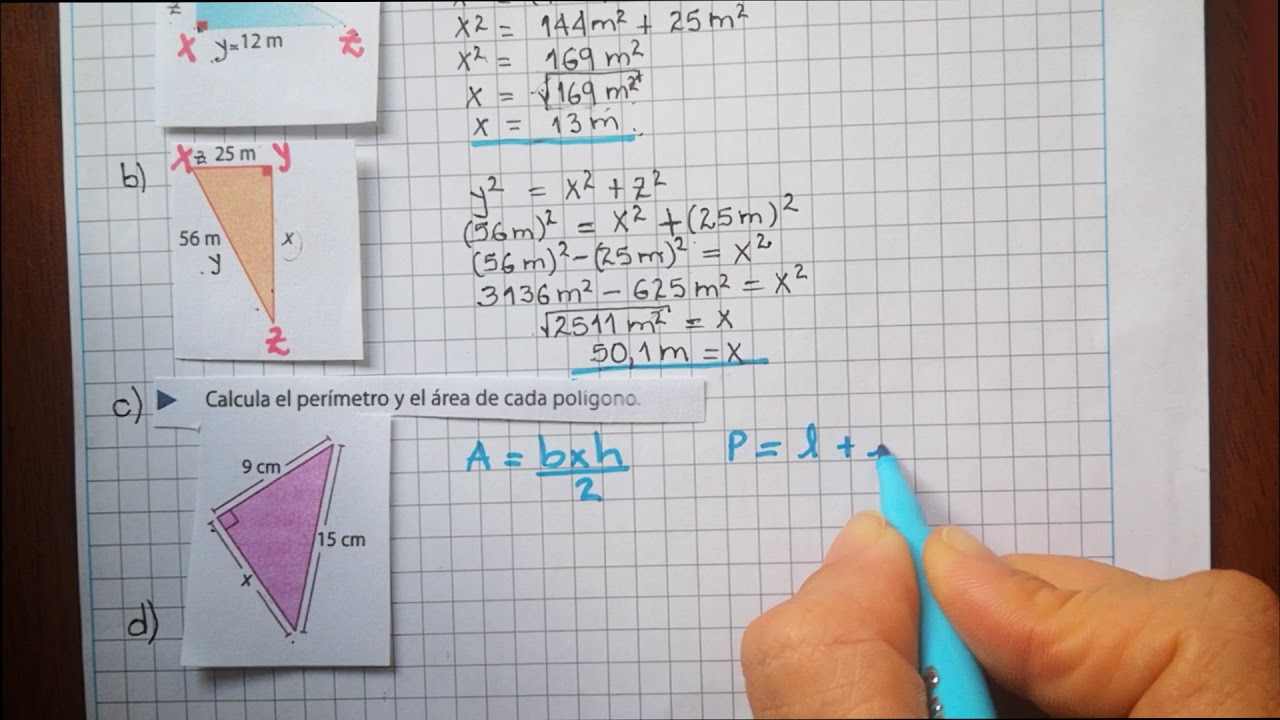 x² = 144m² + 25m²
z
y= 12 m
x z
x² = 169 m²
x = √169 m²
x = 13 m.
b)
x z= 25 m y
56 m
y
x
z
y² = x² + z²
(56m)² = x² + (25m)²
(56m)² - (25m)² = x²
3136m² - 625m² = x²
√2511 m² = x
50,1 m = x
c) Calcula el perímetro y el área de cada polígono.
9 cm
15 cm
x
A = bxh/2
P = l +
d)